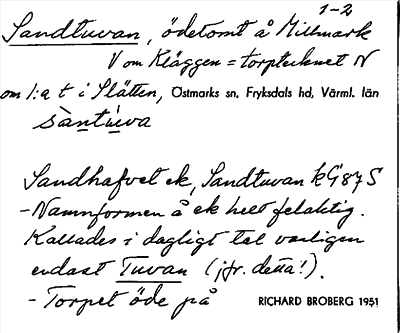 1-2
Sandtuvan, ödetomt å Millmark
V om Kläggen = torptecknet N
om 1:a t i Slätten, Östmarks sn, Fryksdals hd, Värml. län
sàntúva
Sandhafvet ek, Sandtuvan kG87S
- Namnformen å ek helt felaktig.
Kallades i dagligt tal vanligen
endast Tuvan (jfr. detta!).
- Torpet öde på RICHARD BROBERG 1951